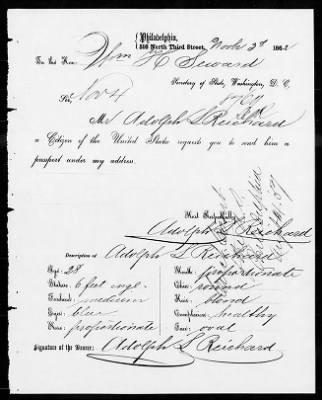 Philadelphia,
516 North Third Street, Nov 3d 186
To the Hon. Wm H Seward
Secretary of State, Washington, D. C.
Sir,
Nov 4
Mr Adolph S Reichard
a Citizen of the United States requests you to send him a
passport under my address.
Most Respectfully
Adolph S Reichard
Description of Adolph S Reichard
Age: 28 Mouth: proportionate
Stature: 6 feet engl. Chin: round
Forehead: medium Hair: blond
Eyes: blue Complexion: healthy
Nose: proportionate Face: oval
Signature of the Bearer: Adolph S Reichard